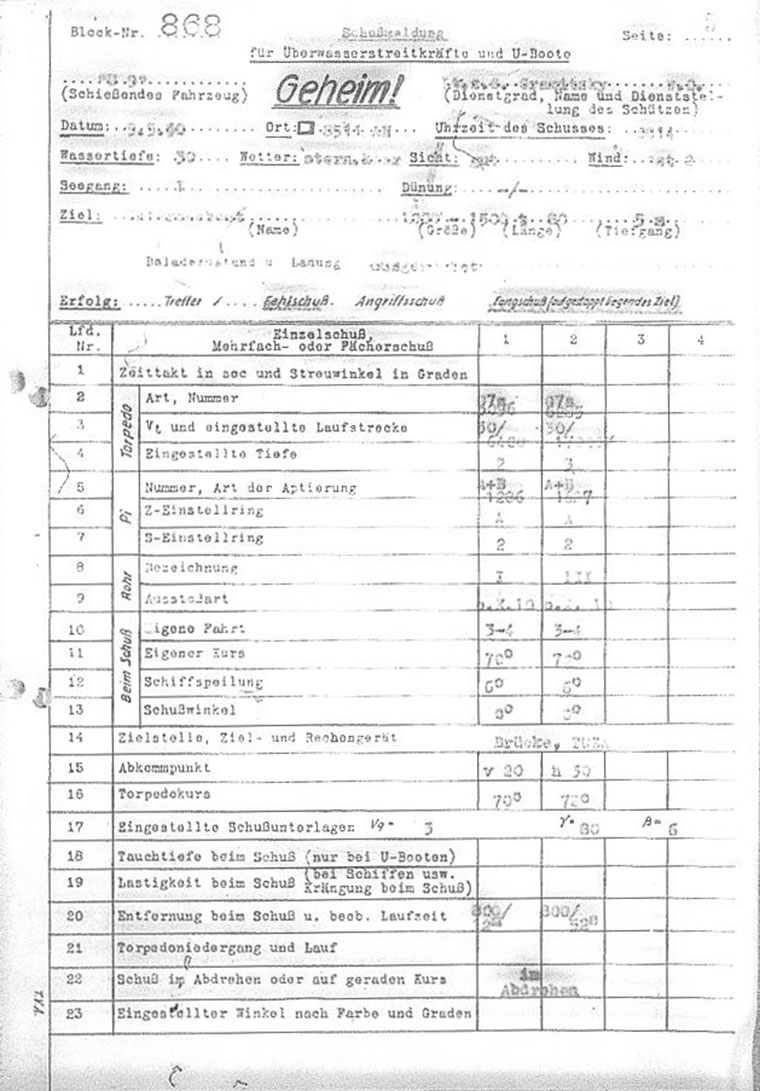 Block-Nr. 868 Schußmeldung Seite: ......
für Überwasserstreitkräfte und U-Boote
Geheim!
(Schießendes Fahrzeug) (Dienstgrad, Name und Dienststel-
lung des Schützen)
Datum: Ort: Uhrzeit des Schusses:
Wassertiefe: 30 Wetter: Sicht: Wind:
Seegang: 1 Dünung: -/-
Ziel: 1200 - 1500 t 60 5 m
(Name) (Größe) (Länge) (Tiefgang)
u Ladung
Erfolg: ..... Treffer / .... Fehlschuß. Angriffsschuß Fangschuß (auf gestoppt liegendes Ziel)
Lfd. Nr. Einzelschuß, 1 2 3 4
Mehrfach- oder Fächerschuß
1 Zeittakt in sec und Streuwinkel in Graden
Torpedo
2 Art, Nummer G7a G7a
3 Vt und eingestellte Laufstrecke 30/ 30/
4 Eingestellte Tiefe 2 3
Pi
5 Nummer, Art der Aptierung A+B A+B
6 Z-Einstellring A A
7 S-Einstellring 2 2
Rohr
8 Bezeichnung I III
9 Ausstoßart
Beim Schuß
10 Eigene Fahrt 3-4 3-4
11 Eigener Kurs 70°
12 Schiffspeilung 6° 6°
13 Schußwinkel 0° 0°
14 Zielstelle, Ziel- und Rechengerät Brücke,
15 Abkommpunkt v 20 h 30
16 Torpedokurs 70° 72°
17 Eingestellte Schußunterlagen Vg= 3 γ= 80 β= 6
18 Tauchtiefe beim Schuß (nur bei U-Booten)
19 Lastigkeit beim Schuß (bei Schiffen usw.
Krängung beim Schuß)
20 Entfernung beim Schuß u. beob. Laufzeit 800/ 800/
21 Torpedoniedergang und Lauf
22 Schuß im Abdrehen oder auf geraden Kurs im
Abdrehen
23 Eingestellter Winkel nach Farbe und Graden